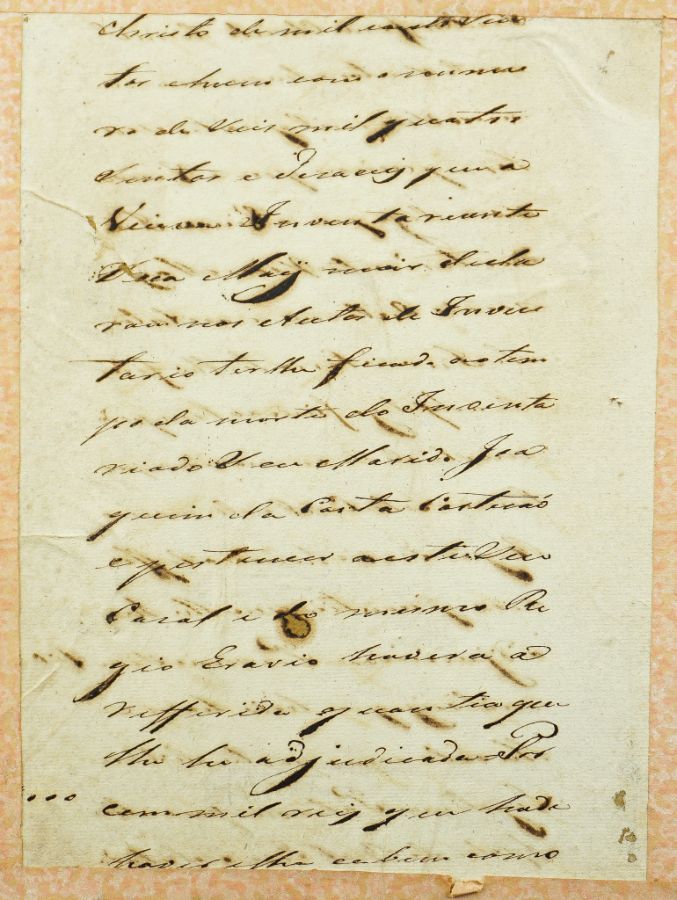 Christo de mil e oito Cen
tos e hum com o nume
ro de Seis mil quatro
Centos e dezaceis que a
Viuva Inventariante
Sua May decla
rou nos Autos de Inven
tario ter lhe ficado ao tem
po da morte do Inventa
riado Seu Marido Joa
quim da Costa
e pertencer a este Seu
Casal e do mesmo Re
gio Erario havera a
refferida quantia que
lhe he adjudicada Por
cem mil reis que hade
haver ella e bem como